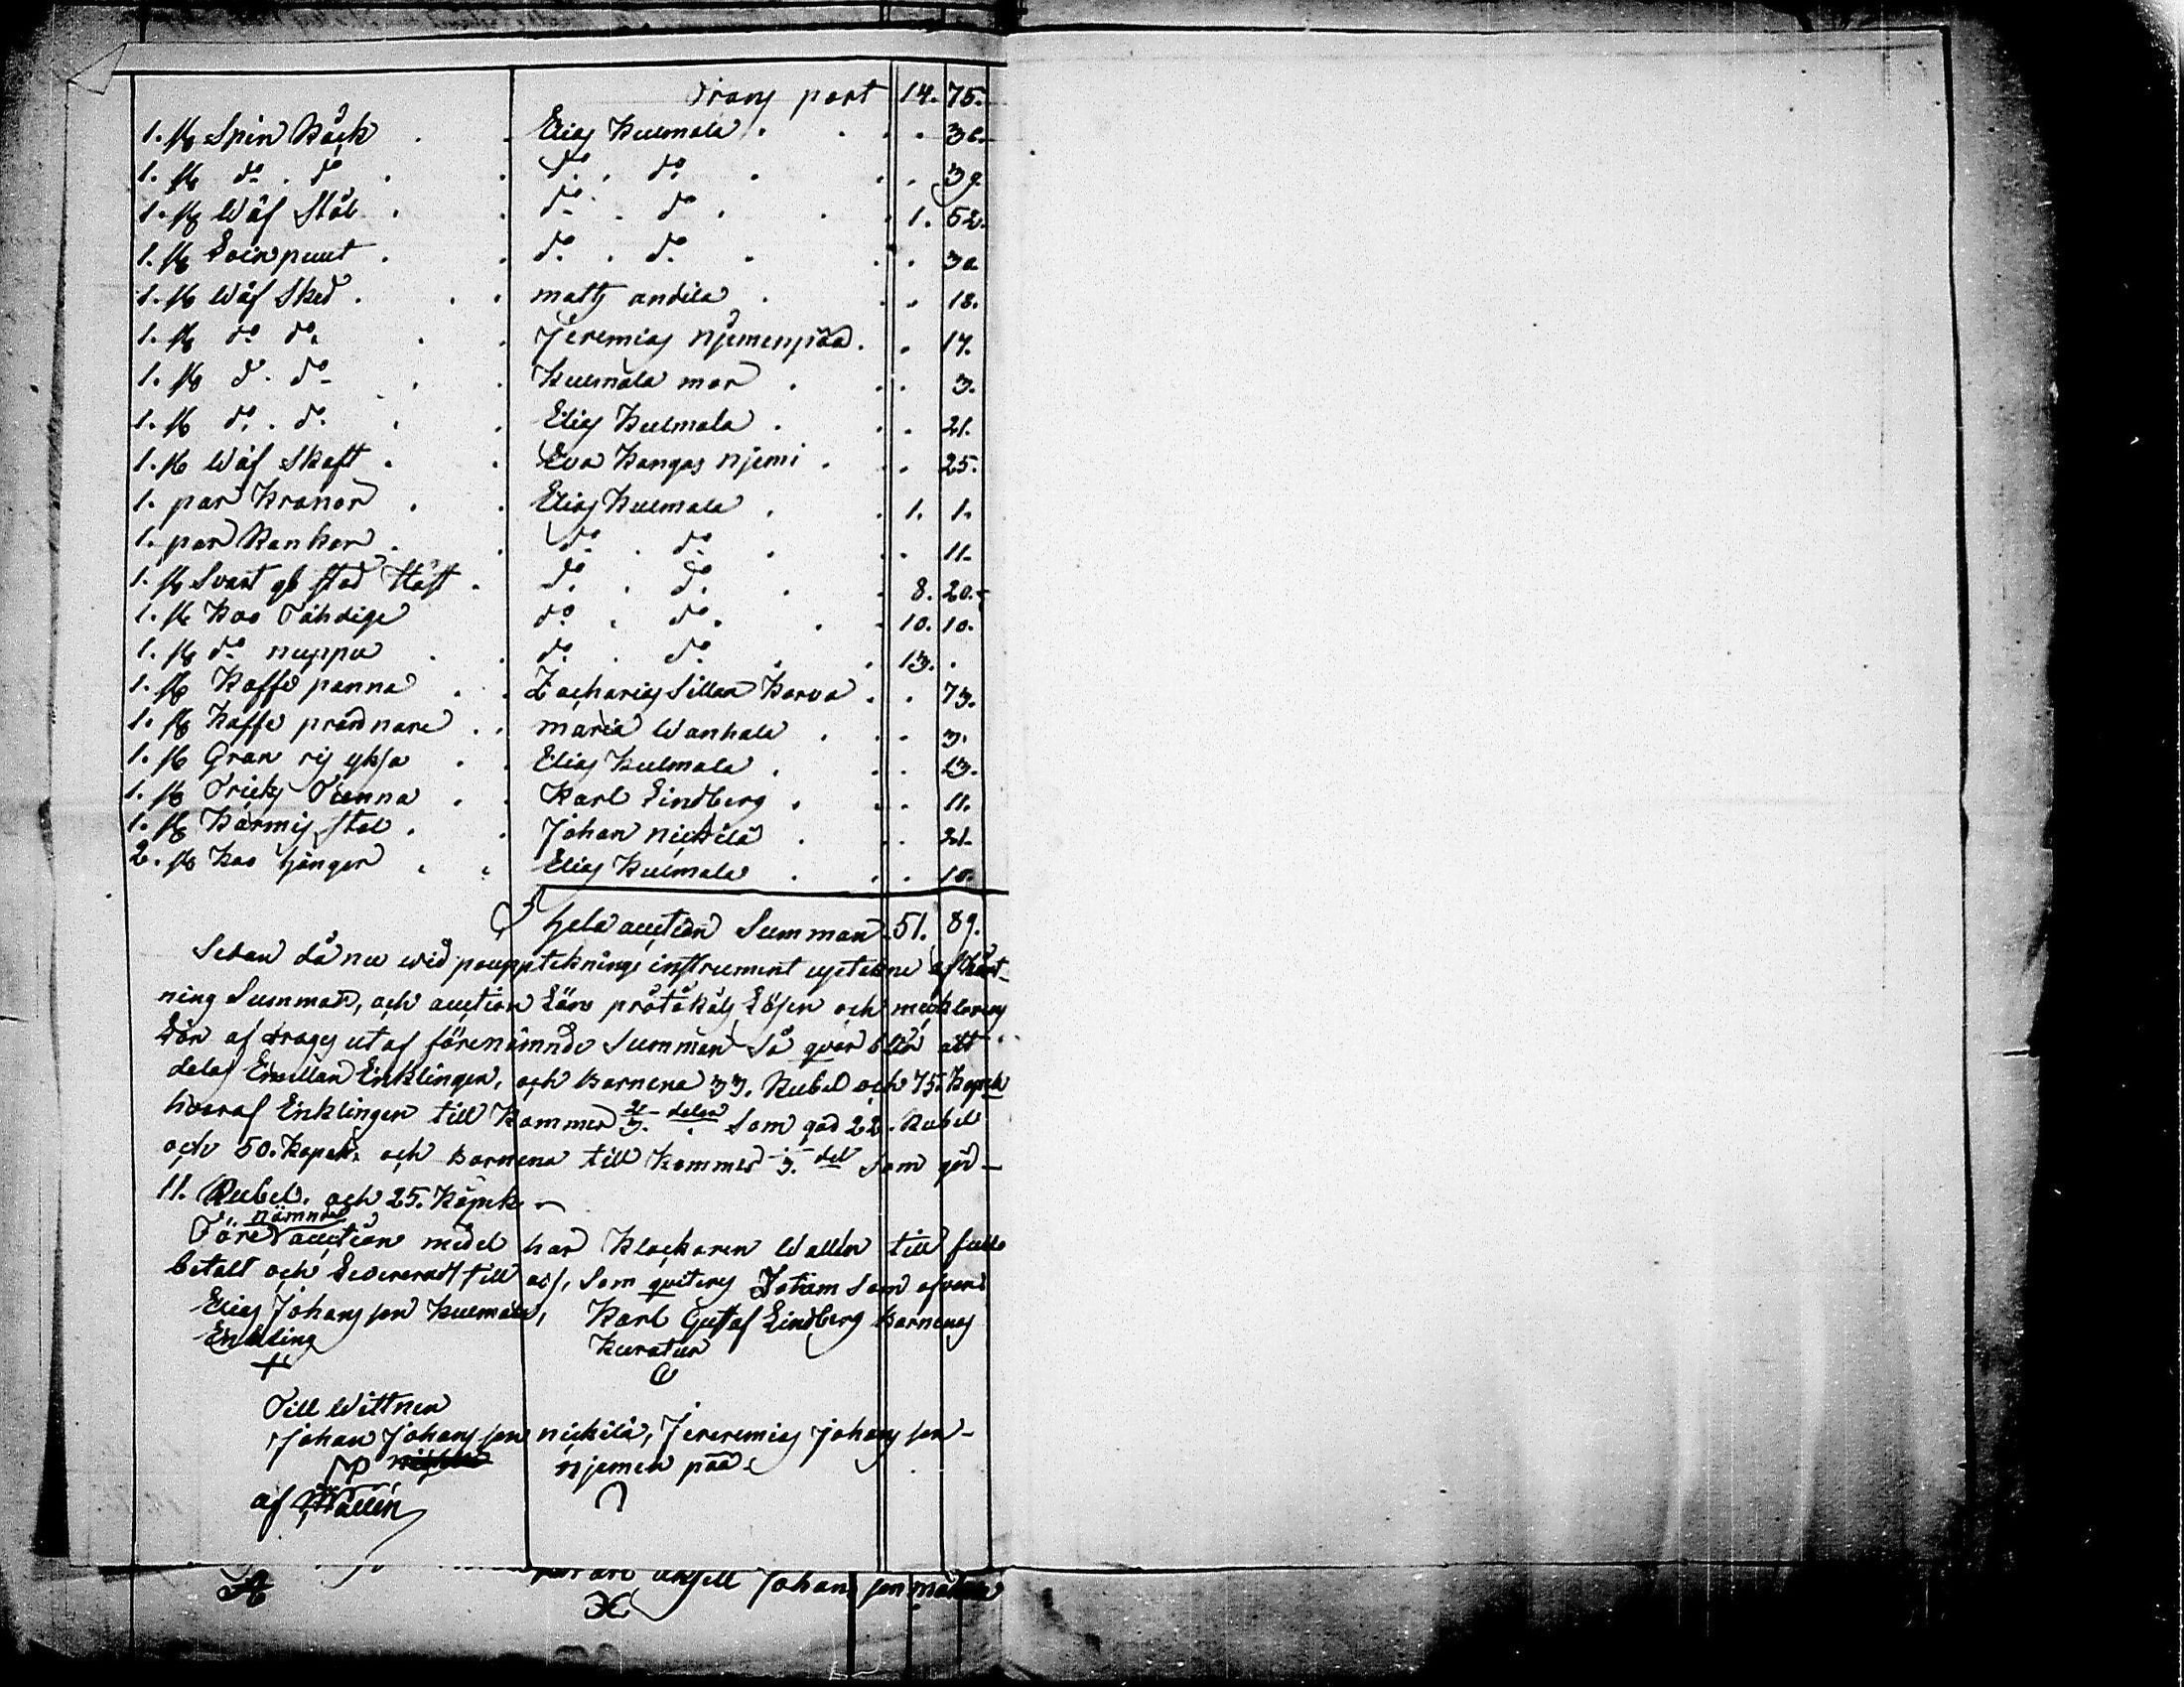 Trans port 14. 75.
1. st Spin Råck . . Elias Kulmala . . . . 30.
1. st do . do . . do . do . . . 39.
1. st Wäf Stôl . . do . do . . 1. 52.
1. st Loinpuut . . do . do . . . 30
1. st Wäf Sked . . . matts andila . . . 18.
1. st do do . . Jeremias njemenpää . . 17.
1. st do . do . . Kulmala mor . . . 3.
1. st do . do . . Elias Kulmala . . . 21.
1. st Wäf Skaft . . Eva Kangas njemi . . . 25.
1. par Kranor . . Elias Kulmala . . 1. 1.
1. par Kankar . . do . do . . . 11.
1. st Svart gl stod Häst . do . do . . 8. 20.
1. st Koo Tähdige do . do . . 10. 10.
1. st do nuppu . . do . do . . 13. .
1. st Kaffe panna . . Zacharias Sillan Korva . . 73.
1. st Kaffe prännare . . maria Wanhala . . . 3.
1. st Gran ris ykså . . Elias Kulmala . . . 23.
1. st Tricks Tunna . . Karl Lindberg . . . 11.
1. st Karmis stol . . Johan nickilä . . . 21.
2. st Koo hånger . . Elias Kulmala . . . 10.
hela auction Summan 51. 89.
Sedan då nu wid pouppteknings instrument uptekne afkårt-
ning Summan, och auction Löne pråtåkåls Lösen och mecklarens
Lön af drages ut af förenämnde Summan Så qvar blir att
delas Emellan Enklingen, och Barnena 33. Rubel och 75. Kopek
hvaraf Enklingen till Kommer 2/3. delar Som gör 22. Rubel
och 50. Kopek. och Barnena till Kommer 1/3. del Som gör
11. Rubel. och 25. Kopek
nämnde
Före auction medel har Klockaren Wallin till fullo
betalt och Levererat till oss, Som qviteras Datum Som ofvan
Elias Johansson Kulmala, Karl Gustaf Lindberg Barnenas
Enkling Kurator
Till Wittnen
Johan Johansson nickilä, Jereremias Johansson
njemen pää
af Wallin
Johansson